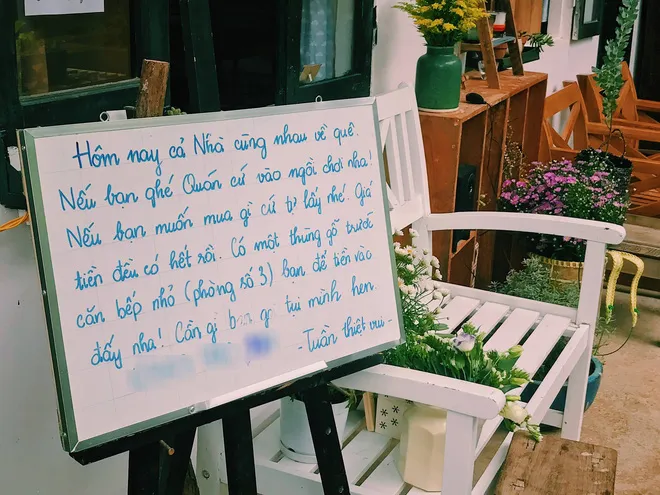 Hôm nay cả Nhà cùng nhau về quê.
Nếu bạn ghé Quán cứ vào ngồi chơi nha!
Nếu bạn muốn mua gì cứ tự lấy nhé. Giá
tiền đều có hết rồi. Có một thùng gỗ trước
căn bếp nhỏ (phòng số 3) bạn để tiền vào
đấy nha! Cần gì bạn gọi tụi mình hen.
- Tuần thiệt vui -